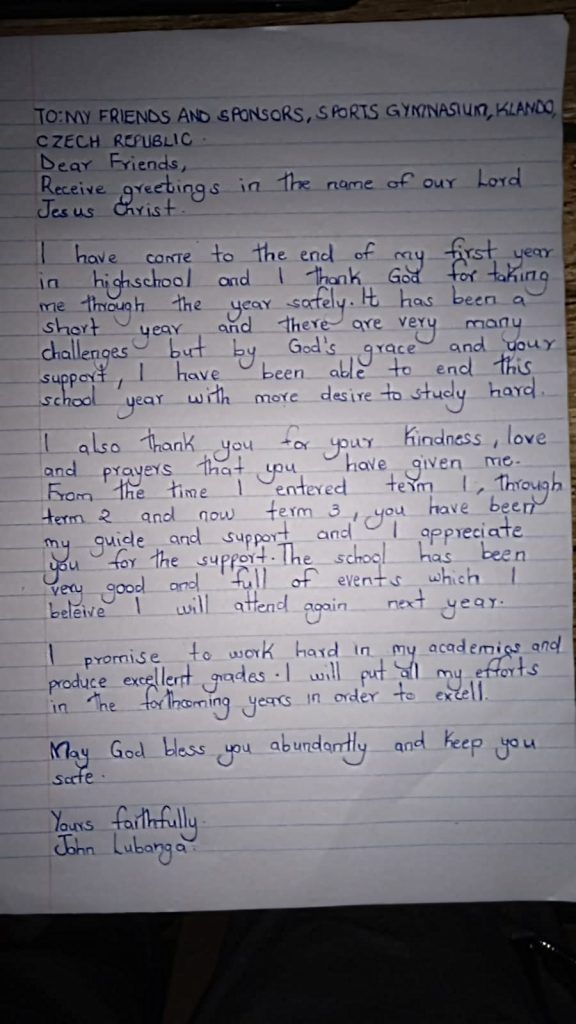 TO: MY FRIENDS AND SPONSORS, SPORTS GYMNASIUM, KLANDO,
CZECH REPUBLIC.
Dear Friends,
Receive greetings in the name of our Lord
Jesus Christ.
I have come to the end of my first year
in highschool and I thank God for taking
me through the year safely. It has been a
short year and there are very many
challenges but by God's grace and your
support, I have been able to end this
school year with more desire to study hard.
I also thank you for your kindness, love
and prayers that you have given me.
From the time I entered term 1, through
term 2 and now term 3, you have been
my guide and support and I appreciate
you for the support. The school has been
very good and full of events which I
beleive I will attend again next year.
I promise to work hard in my academics and
produce excellent grades. I will put all my efforts
in the forthcoming years in order to excell.
May God bless you abundantly and keep you
safe.
Yours faithfully.
John Lubanga.